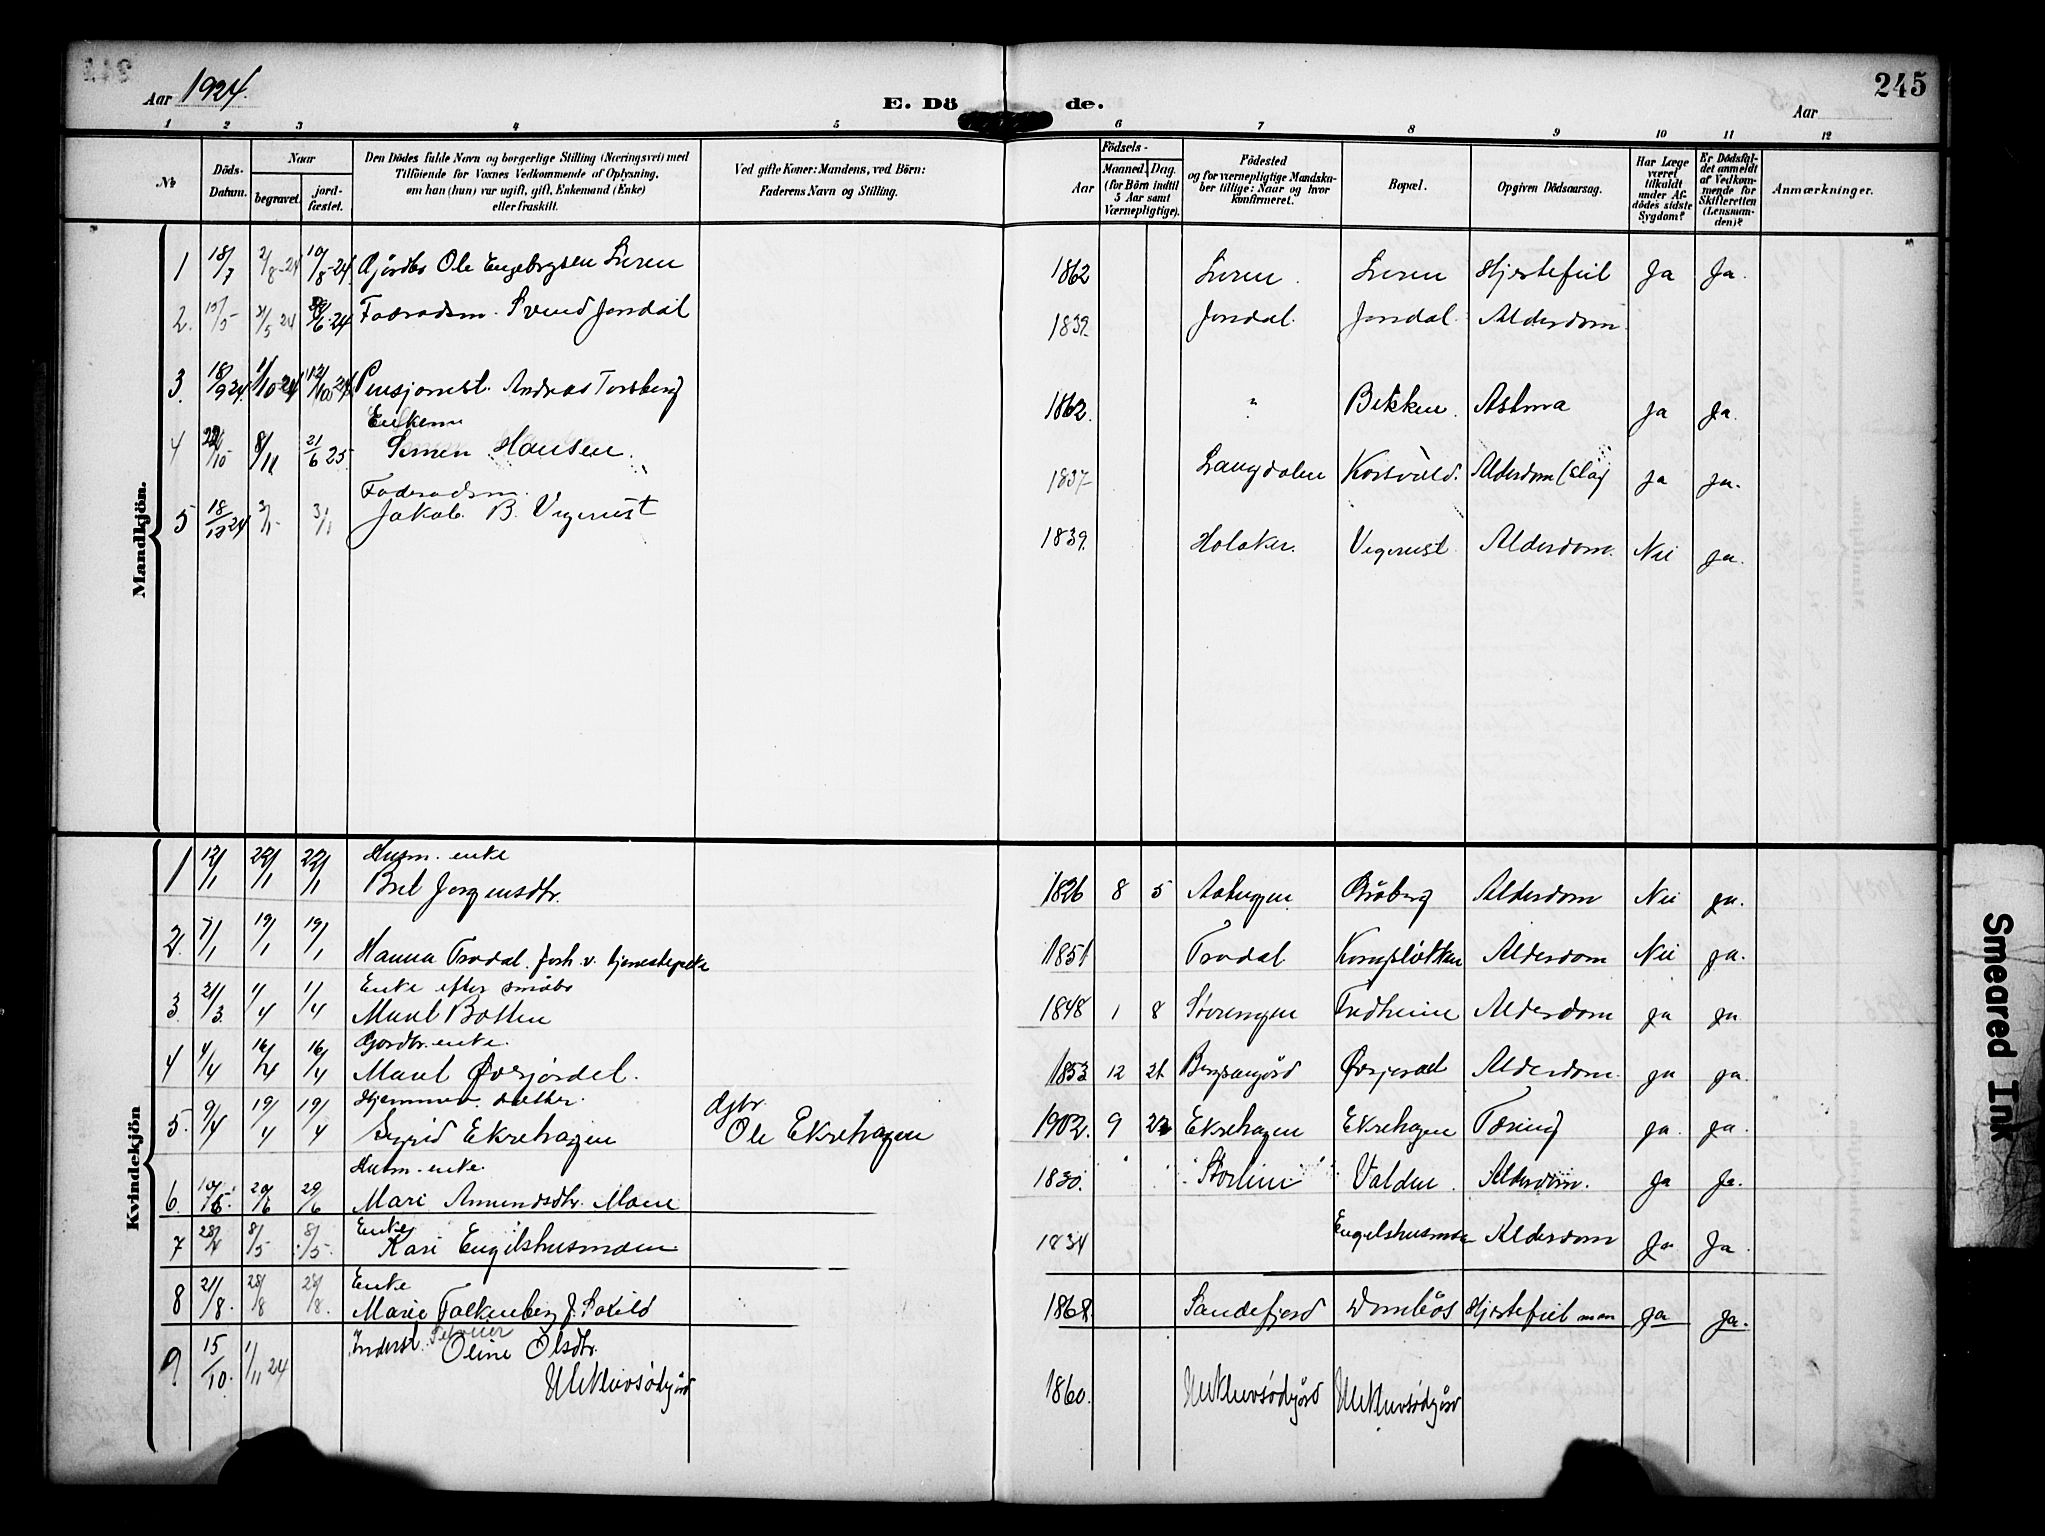 Aar 1924. E. Dö de. Aar 245
1 2 3 4 5 6 7 8 9 10 11 12
№ Döds-Datum. Naar begravet. jordfæstet. Den Dödes fulde Navn og borgerlige Stilling (Næringsvei) med Tilföiende for Voxnes Vedkommende af Oplysning, om han (hun) var ugift, gift, Enkemand (Enke) eller fraskilt. Ved gifte Koner: Mandens, ved Börn: Faderens Navn og Stilling. Aar Födsels- Maaned. Dag. (for Börn indtil 5 Aar samt Værnepligtige). Födested og for værnepligtige Mandskaber tillige: Naar og hvor konfirmeret. Bopæl. Opgiven Dödsaarsag. Har Læge været tilkaldt under Afdödes sidste Sygdom? Er Dödsfaldet anmeldt af Vedkommende for Skifteretten (Lensmanden)? Anmærkninger.
Mandkjön.
1 18/7 2/8-24 10/8-24 Gjørdbr Ole Engebrgsen Luren 1862 Luren. Luren Hjertefeil Ja Ja.
2. 13/5 21/5 24 29/6.24 Foderadsm. Svend Jondal 1839 Jondal. Jondal. Alderdom
3. 18/9 24. 1/10-24 12/10 24 Pensjonist. Andreas Torsberg 1862. " Bekken. Astma ja Ja.
Enkem
4 22/10 8/11 21/6 25. Simen Hansen. 1837 Langdalen Korsvold. Alderdom (Slag) ja ja.
Foderadsm.
5 18/12 24 3/1 3/1 Jakob B. Vigerust 1839. Holaker. Vigerust Alderdom. Nei ja.
Kvindekjön
Husm. enke
1 12/1 22/1 22/1 Brit Jorgensdtr. 1826 8 5 Aahugen Braberg Alderdom Nei ja.
2. 7/1 19/1 19/1 Hanna Trodal. forh. v. tjenestepike 1851 Trodal Alderdom Nei ja.
Enke efter småbr
3. 21/3. 1/4 1/4 Marit Botten 1848 1 8 Sørengen Fredheim Alderdom ja ja
Gordbr. enke.
4 4/4 16/4 16/4 Marit Øverjordet. 1853 12 21 Øverjordet Alderdom. ja ja.
Hjemmev. datter.
5. 9/4 19/4 19/4 Sigrid Ekrehagen Gjbr. Ole Ekrehagen 1902. 9 22 Ekrehagen Ekrehagen Tæring ja. ja.
Husm. enke.
6. 20/6 29/6 Mari Amundsdtr. Moen 1830. Storlien Valden. Alderdom. Ja Ja.
Enke
7 28/4 8/5 8/5. Kari Engelshusmoen 1834 Engelshusmoen Alderdom Ja Ja
Enke
8 21/8. 28/8 28/8. Marie Falkenberg f. 1868. Sandefjord Dombås Hjertefeil Ja Ja.
Inderst.
9 15/10. 1/11 24 Oline Olsdtr. 1860.
Smeared Ink